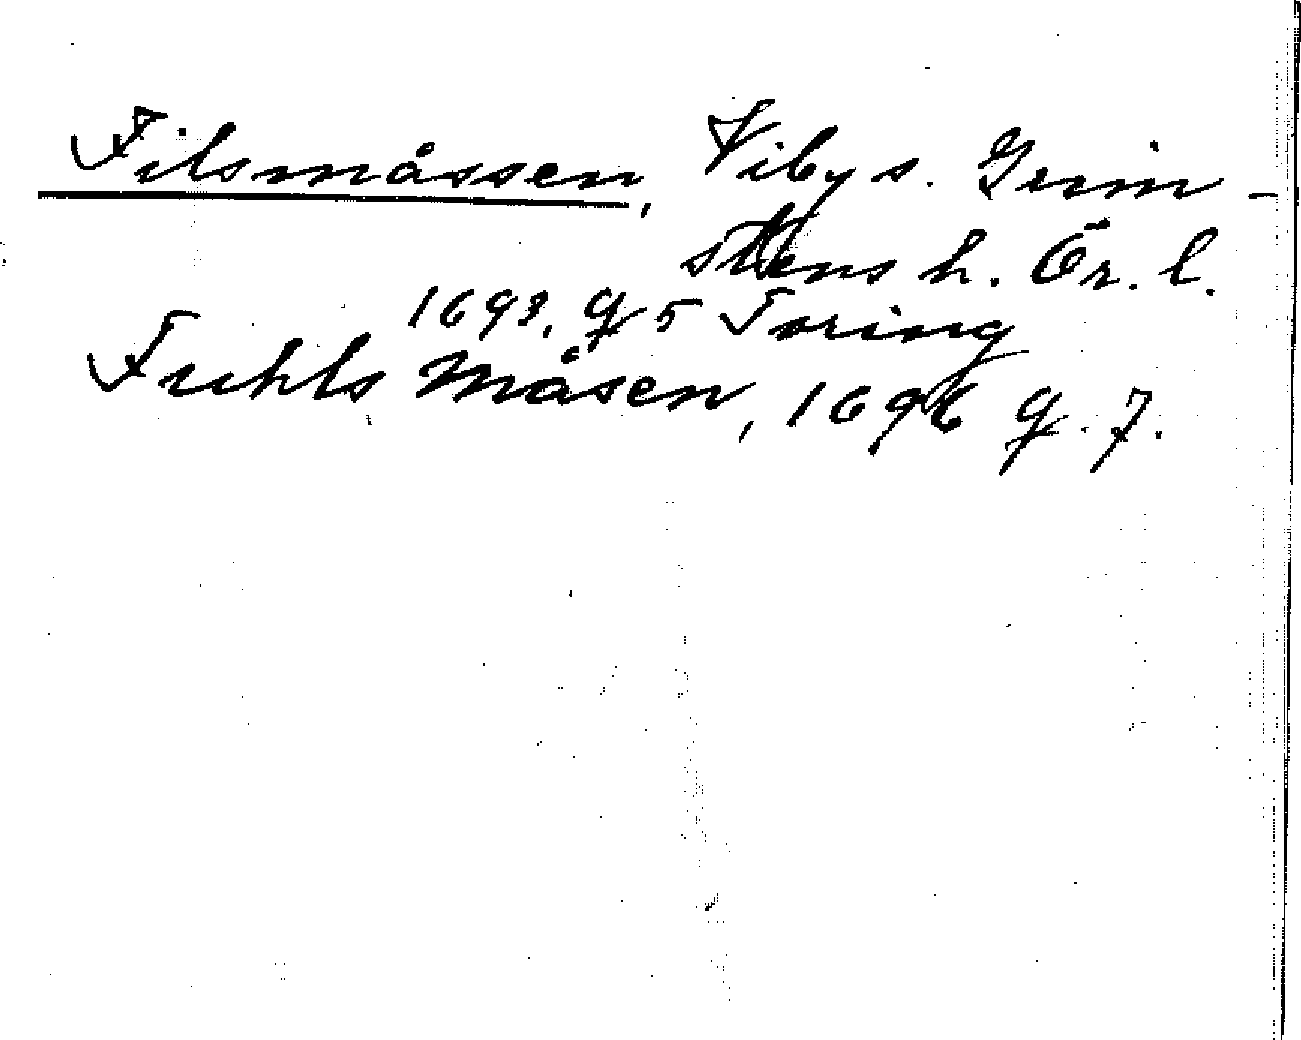 Filsmåssen, Viby s. Grim-
stens h. Ör. l.
1698. g 5 Toring
Fuhls Måsen, 1696 g. 7.